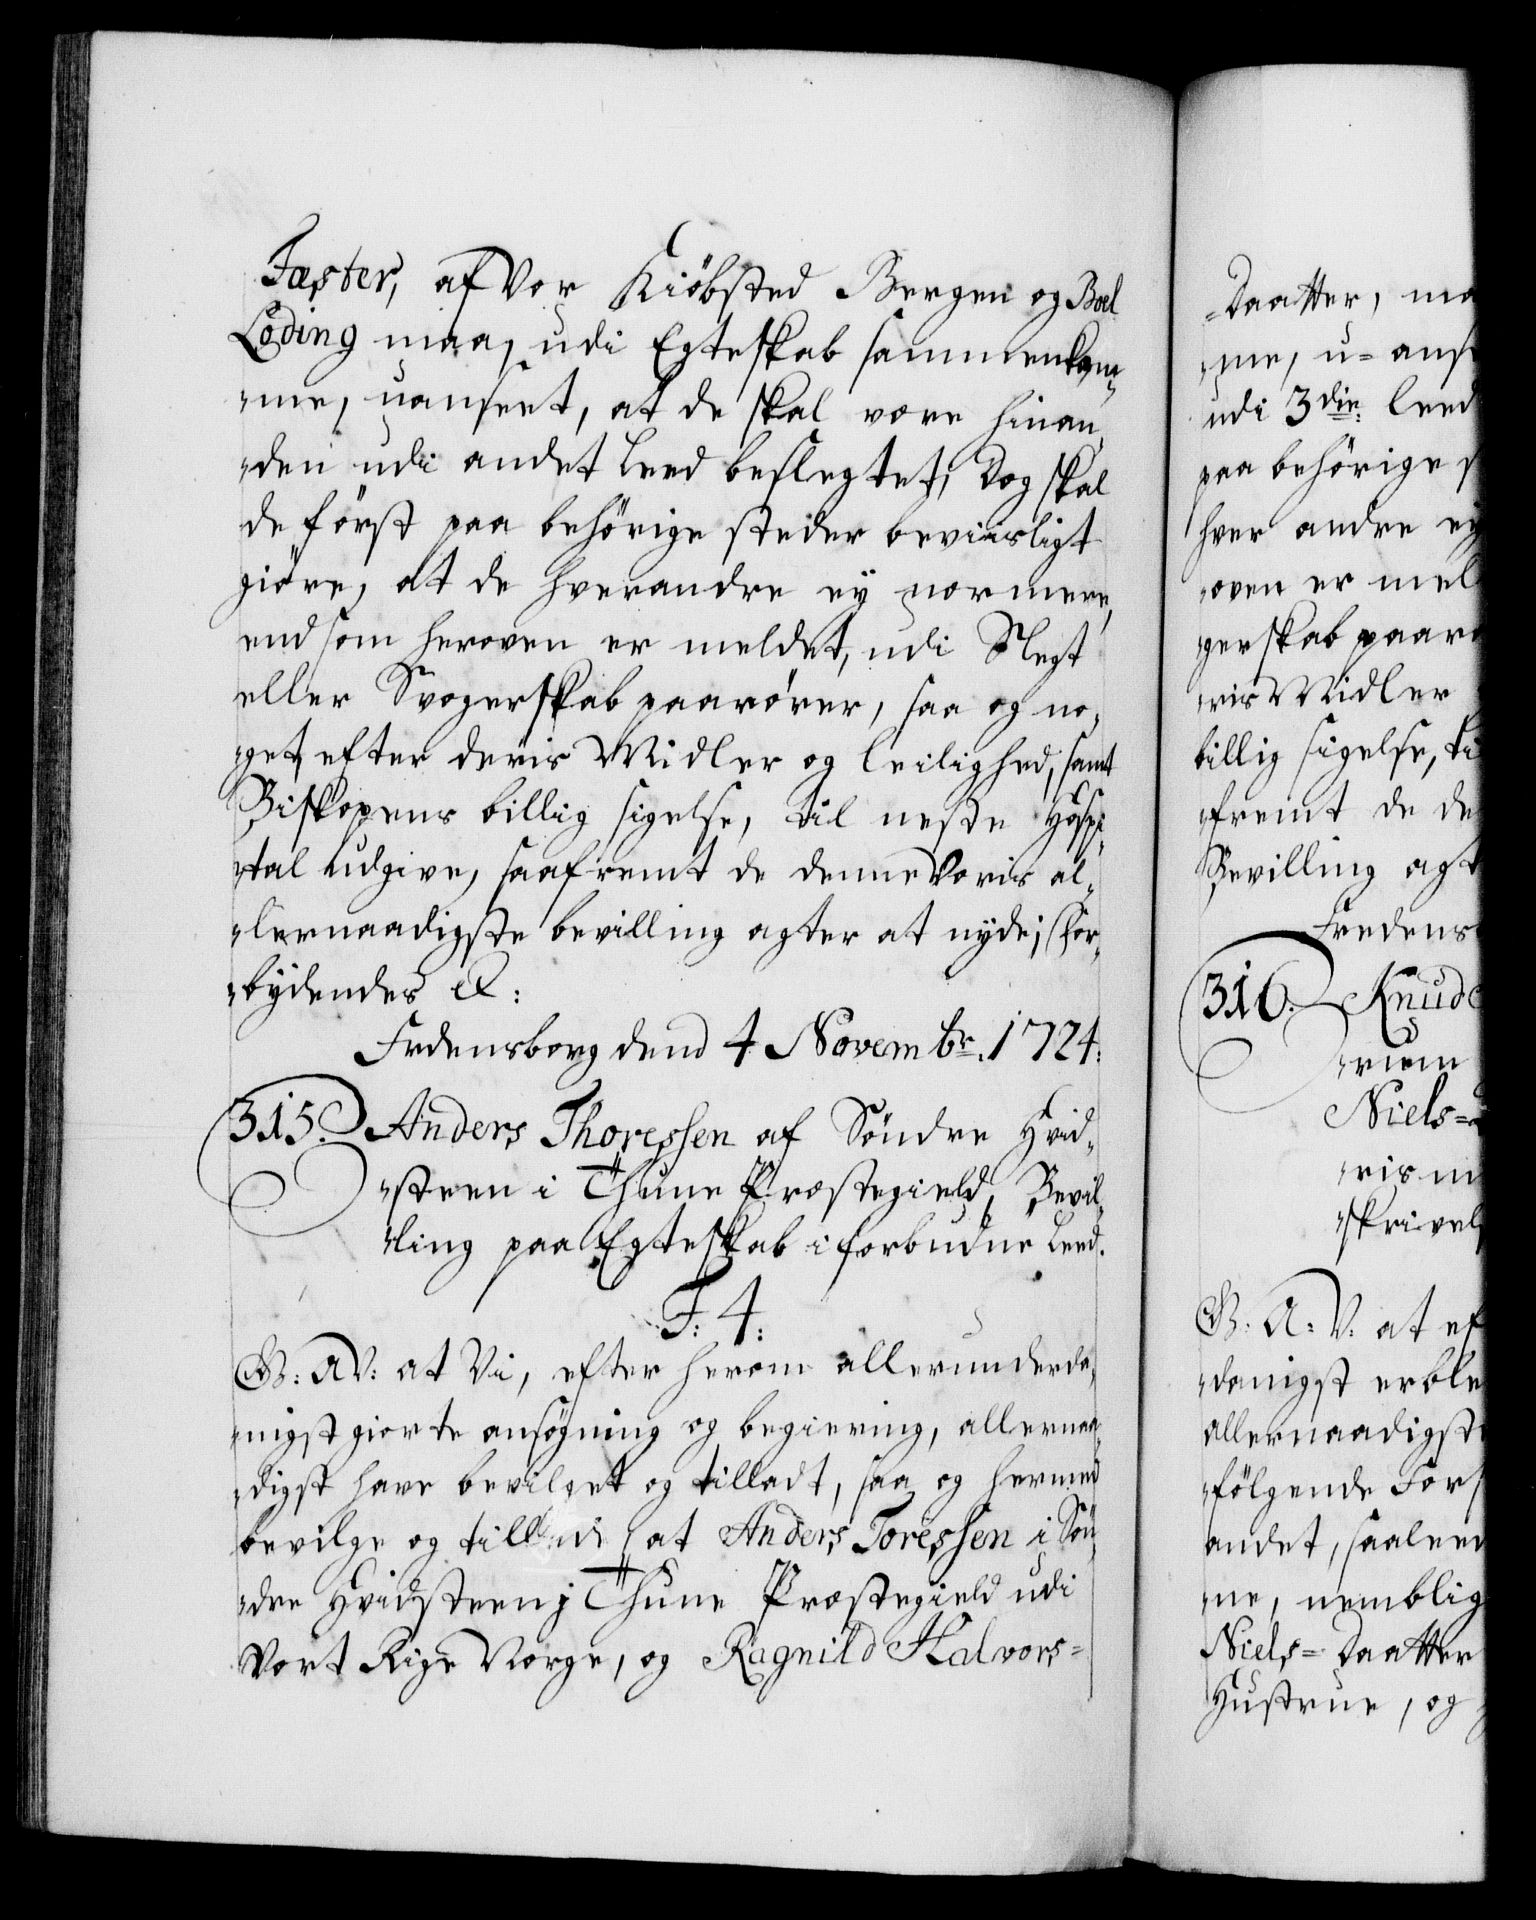 Faster, af Vor Kiöbsted Bergen og Boel
Loding maa, udi Egteskab sammenkom¬
me, uanseet, at de skal være hinan¬
den udi andet Leed beslegtet; Dog skal
de först paa behörige steder beviisligt
giöre, at de hverandre ey nærmere,
end som heroven er meldet, udi Slegt
eller Svogerskab paarörer, saa og no¬
get, efter deris Midler og leilighed, samt
Biskopens billig sigelse, til neste Hospi¬
tal udgive, saafremt de denne Voris al¬
lernaadigste bevilling agter at nyde; (For¬
bydendes &:
Fredensborg dend 4 Novembr. 1724.
315. Anders Thoressen af Söndre Hvid¬
steen i Thune Præstegield, Bevil¬
ling paa Egteskab i forbudne Leed.
F: 4:
G: A V: at Vi, efter herom allerunderda¬
nigst giorte ansøgning og begiering, allernaa¬
digst have bevilget og tilladt, saa og hermed
bevilge og tillade (at Anders Toressen i Sön¬
dre Hvidsteen j Thune Præstegield udi
Vort Rige Norge, og Ragnild Halvors=
Daatter, ma
me, u=anse
udi 3die: leed
paa behörige s
hver andre ey
oven er mel
gerskab paarö
ris Midler
billig sigelse, ti
fremt de de
Bevilling agt
Fredens
316. Knud
rium
Niels=
ris m
skrivel
G: A: V: at ef
danigst erble
allernaadigst
fölgende For
andet, saaleed
ne, nemblig
Niels=Daatter
Hustrue, og